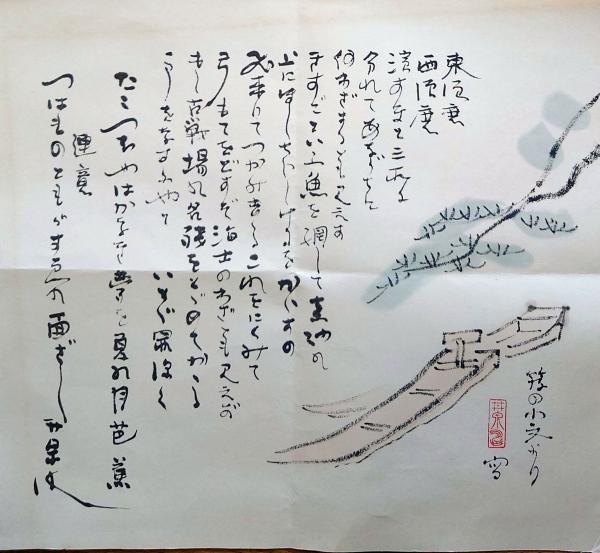 東須磨
西須磨
濱すまと三所に
分れてあながちに
何わざするとも見えず
きすごといふ魚を網して真砂の
上にほしちらしけるをからすの
飛来りてつかみ去るこれをにくみて
弓もてをどすぞ海士のわざとも見えず
もし古戦場の名残をとどめてかかる
ことをなすにやと いとど罪深く
たこつぼやはかなき夢を夏の月 芭蕉
連意
つはものどもがすゑの面ざし 井泉水
笈の小文より